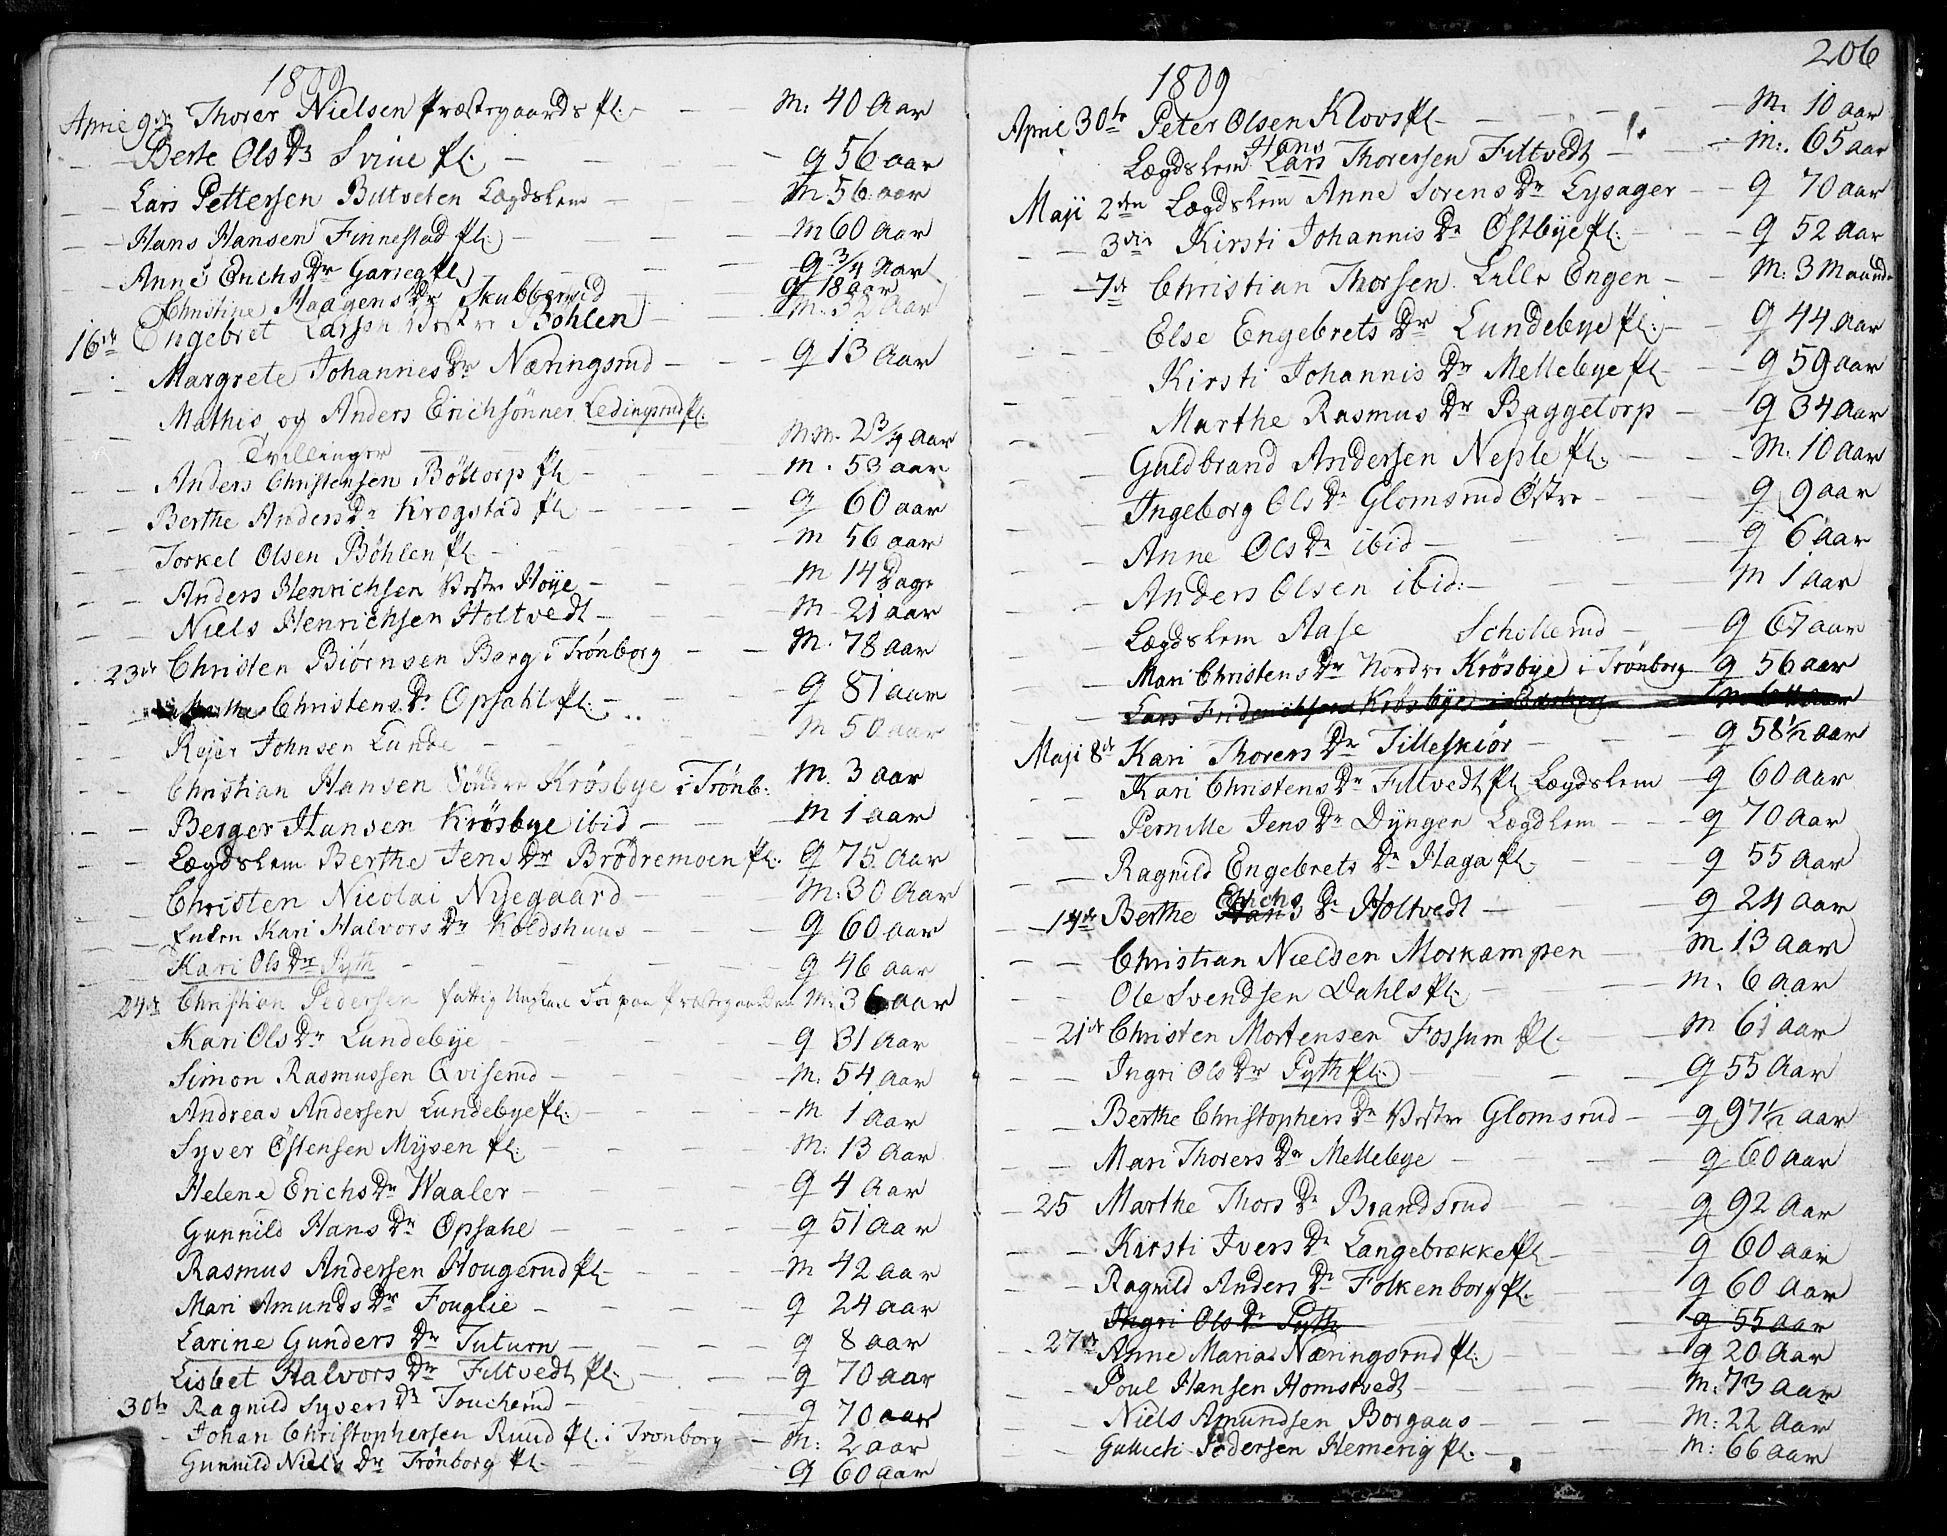 1809
April 9de Thorer Nielsen Præstegaards Pl: - - - M: 40 Aar
- - Berte Ols Dr Svine Pl: - - g 56 aar
- - Lars Pettersen Bultveten Lægdslem - M: 56 aar
- - Hans Hansen Finnestad Pl: - - - M 60 Aar
- - Anne Erichs Dr Garseg Pl - - - g 3/4 Aar
Christine Haagens Dr Skubberud g 18 aar
16de Engebret Larsen Vestre Böhlen - - - M. 32 Aar
- - Margrete Johannes Dr Næringsrud - - - g 13 Aar
- - Mathis og Anders Erichsönner Ledingsrud Pl:
Tvillinger - - MM. 2 3/4 Aar
- - Anders Christensen Böltorp Pl - - M. 53 aar
- - Berthe Anders Dr Krogstad Pl - - - g 60 aar
- - Torkel Olsen Böhlen Pl - - - M 56 aar
- - Anders Henrichsen Vestre Höye - - - M 14 Dage
- - Niels Henrichsen Holtvedt - - - M 21 aar
23de Christen Biörnsen Berg i Trönborg - - M. 78 aar
- Christens Dr Opsahl Pl: - - - g 81 aar
- - Rejer Johnsen Lunde - - - M 50 aar
- - Christian Hansen Söndre Krösbye i Trönb: M. 3 aar
- - Berger Hansen Krösbye ibid - - - M 1 aar
- - Lægdslem Berthe Jens Dr Brödremoen Pl: g 75 Aar
- - Christen Nicolai Nyegaard - - - M: 30 Aar
- - Enken Kari Halvors Dr Koldshuus - - - g 60 aar
- - Kari Ols Dr Pyth - - - g 46 aar
24de Christian Pedersen fattig Ungkarl Döe paa Præstegaarden M: 36 aar
Kari Ols Dr Lundebye - - - g 31 Aar
Simon Rasmussen Qviserud - - - M: 54 Aar
Andreas Andersen Lundebye Pl: - - - M 1 Aar
Syver Östensen Mysen Pl: - - - M: 13 Aar
Helene Erichs Dr Waaler - - - g 4 Aar
Gunnild Hans Dr Opsahl - - - g 51 Aar
Rasmus Andersen Hougerud Pl - - - M 42 aar
Mari Amunds Dr Fouglie - - - g 24 aar
Larine Gunders Dr Tuturn - - - g 8 aar
Lisbet Halvors Dr Filtvedt Pl: - - - g 70 aar
30te Ragnild Syvers Dr Toucherud - - g 70 aar
- Johan Christophersen Ruud Pl: i Trönborg - M: 2 aar
Gunnild Niels Dr Trönborg Pl - - - g 60 aar
206
1809
April 30te Peter Olsen Klovs Pl - - - M. 10 aar
Hans
Lægdslem Lars Thorersen Filtvedt - - - M: 65 aar
Maji 2den Lægdslem Anne Sorens Dr Lysager - - g 70 aar
- - 3die Kirsti Johannis Dr Östbye Pl: - - - g 52 aar
- - 7de Christian Thorsen Lille Engen - - M: 3 Maaneder
- - Else Engebrets Dr Lundebye Pl: - - g 44 aar
- - Kirsti Johannis Dr Mellebye Pl - - g 59 aar
- - Marthe Rasmus Dr Baggetorp - - g 34 aar
- - Guldbrand Andersen Neple Pl: - - - M: 10 Aar
- - Ingeborg Ols Dr Glomsrud Östre - - - g 9 aar
- - Anne Ols Dr ibid - - - g 6 aar
- - Anders Olsen ibid: - - - M 1 aar
- - Lægdslem Aase Schollerud - - - g 67 aar
- - Mari Christens Dr Nordre Krösbye i Trönborg g 56 aar
- - Lars Friderichsen Krösbye
Maji 8de Kari Thorers Dr Tilleskiör - - - g 58 1/2 aar
- - Kari Christens Dr Filtvedt Pl Lægdslem - g 60 aar
- - Pernille Jens Dr Dyngen Lægdlem - - - g 70 Aar
- - Ragnild Engebrets Dr Haga Pl: - - - g 55 Aar
Erichs
- 14de Berthe Hans Dr Holtvedt - - - g 24 Aar
- - Christian Nielsen Morkampen - - M 13 aar
- - Ole Svendsen Dahls Pl: - - - M. 6 Aar
- 21de Christen Mortensen Fossum Pl - - M 61 aar
- - Ingri Ols Dr Pyth Pl: - - - g 55 Aar
- - Berthe Christophers Dr Vestre Glomsrud - - g 97 1/2 aar
- - Mari Thorers Dr Mellebye - - - g 60 aar
- 25 Marthe Thors Dr Brandsrud - - - g 92 Aar
- - Kirsti Ivers Dr Langebrække Pl - - - g 60 aar
- - Ragnild Anders Dr Folkenborg Pl: - - g 60 Aar
Ingri Ols Dr Pyth - g 55 aar
- 27de Anne Maria Næringsrud Pl: - - - g 20 Aar
- - Poul Hansen Homstvedt - - - M: 73 aar
- Niels Amundsen Borgaas - - - M: 22 Aar
- Gullich Pedersen Hemerig Pl: - - M: 66 aar